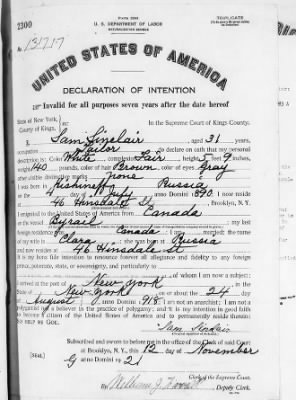 2300
U. S. DEPARTMENT OF LABOR
TRIPLICATE
No. 131717
UNITED STATES OF AMERICA
DECLARATION OF INTENTION
Invalid for all purposes seven years after the date hereof
State of New York,
County of Kings,
In the Supreme Court of Kings County.
I, Sam Sinclair, aged 31 years,
occupation Tailor, do declare on oath that my personal
description is: Color White, complexion Fair, height 5 feet 9 inches,
weight 140 pounds, color of hair Brown, color of eyes Gray
other visible distinctive marks none
I was born in Kishineff Russia
on the day of, anno Domini 1890; I now reside
at 46 Hinsdale St, Brooklyn, N. Y.
I emigrated to the United States of America from Canada
on the vessel Byrail; my last
foreign residence was Canada; I am married; the name
of my wife is Clara; she was born at Russia
and now resides at 46 Hinsdale St
It is my bona fide intention to renounce forever all allegiance and fidelity to any foreign
prince, potentate, state, or sovereignty, and particularly to
of whom I am now a subject;
I arrived at the port of New York, in the
State of New York, on or about the 24 day
of August, anno Domini 1918; I am not an anarchist; I am not a
polygamist nor a believer in the practice of polygamy; and it is my intention in good faith
to become a citizen of the United States of America and to permanently reside therein:
SO HELP ME GOD.
Sam Sinclair
Subscribed and sworn to before me in the office of the Clerk of said Court
at Brooklyn, N. Y., this 12 day of November
anno Domini 1921
[SEAL]
Deputy Clerk.